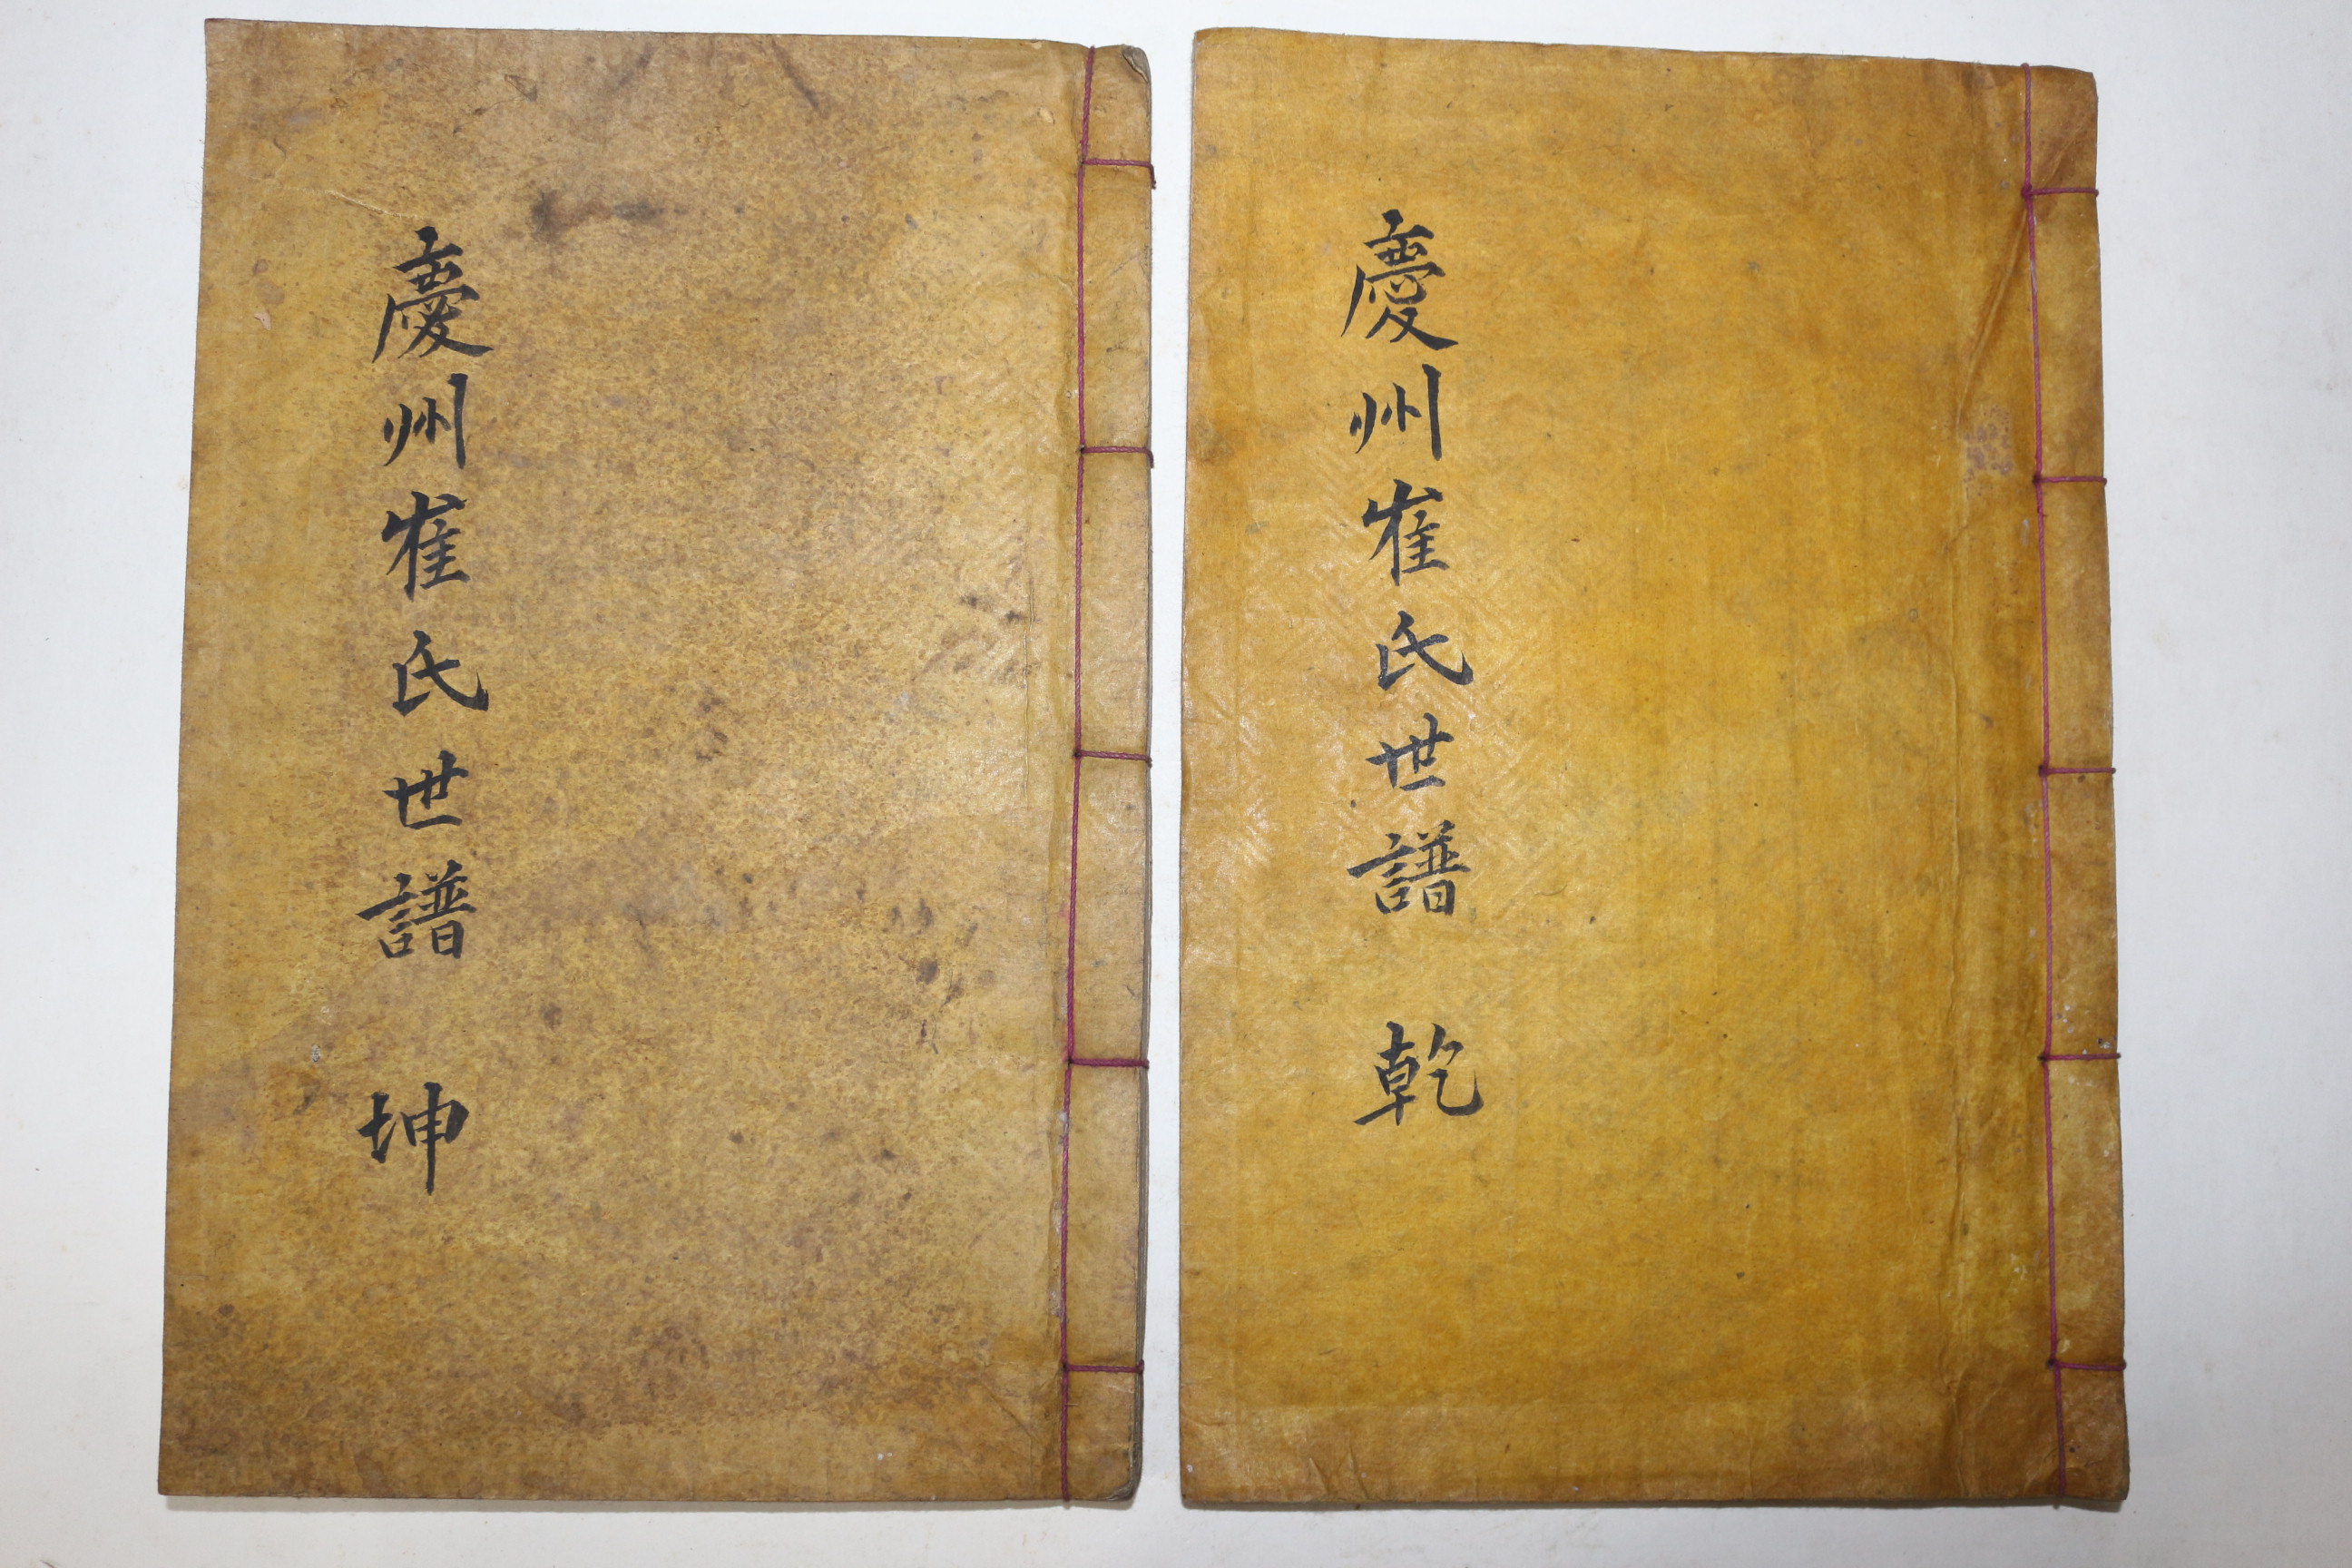 慶州崔氏世譜 乾
慶州崔氏世譜 坤